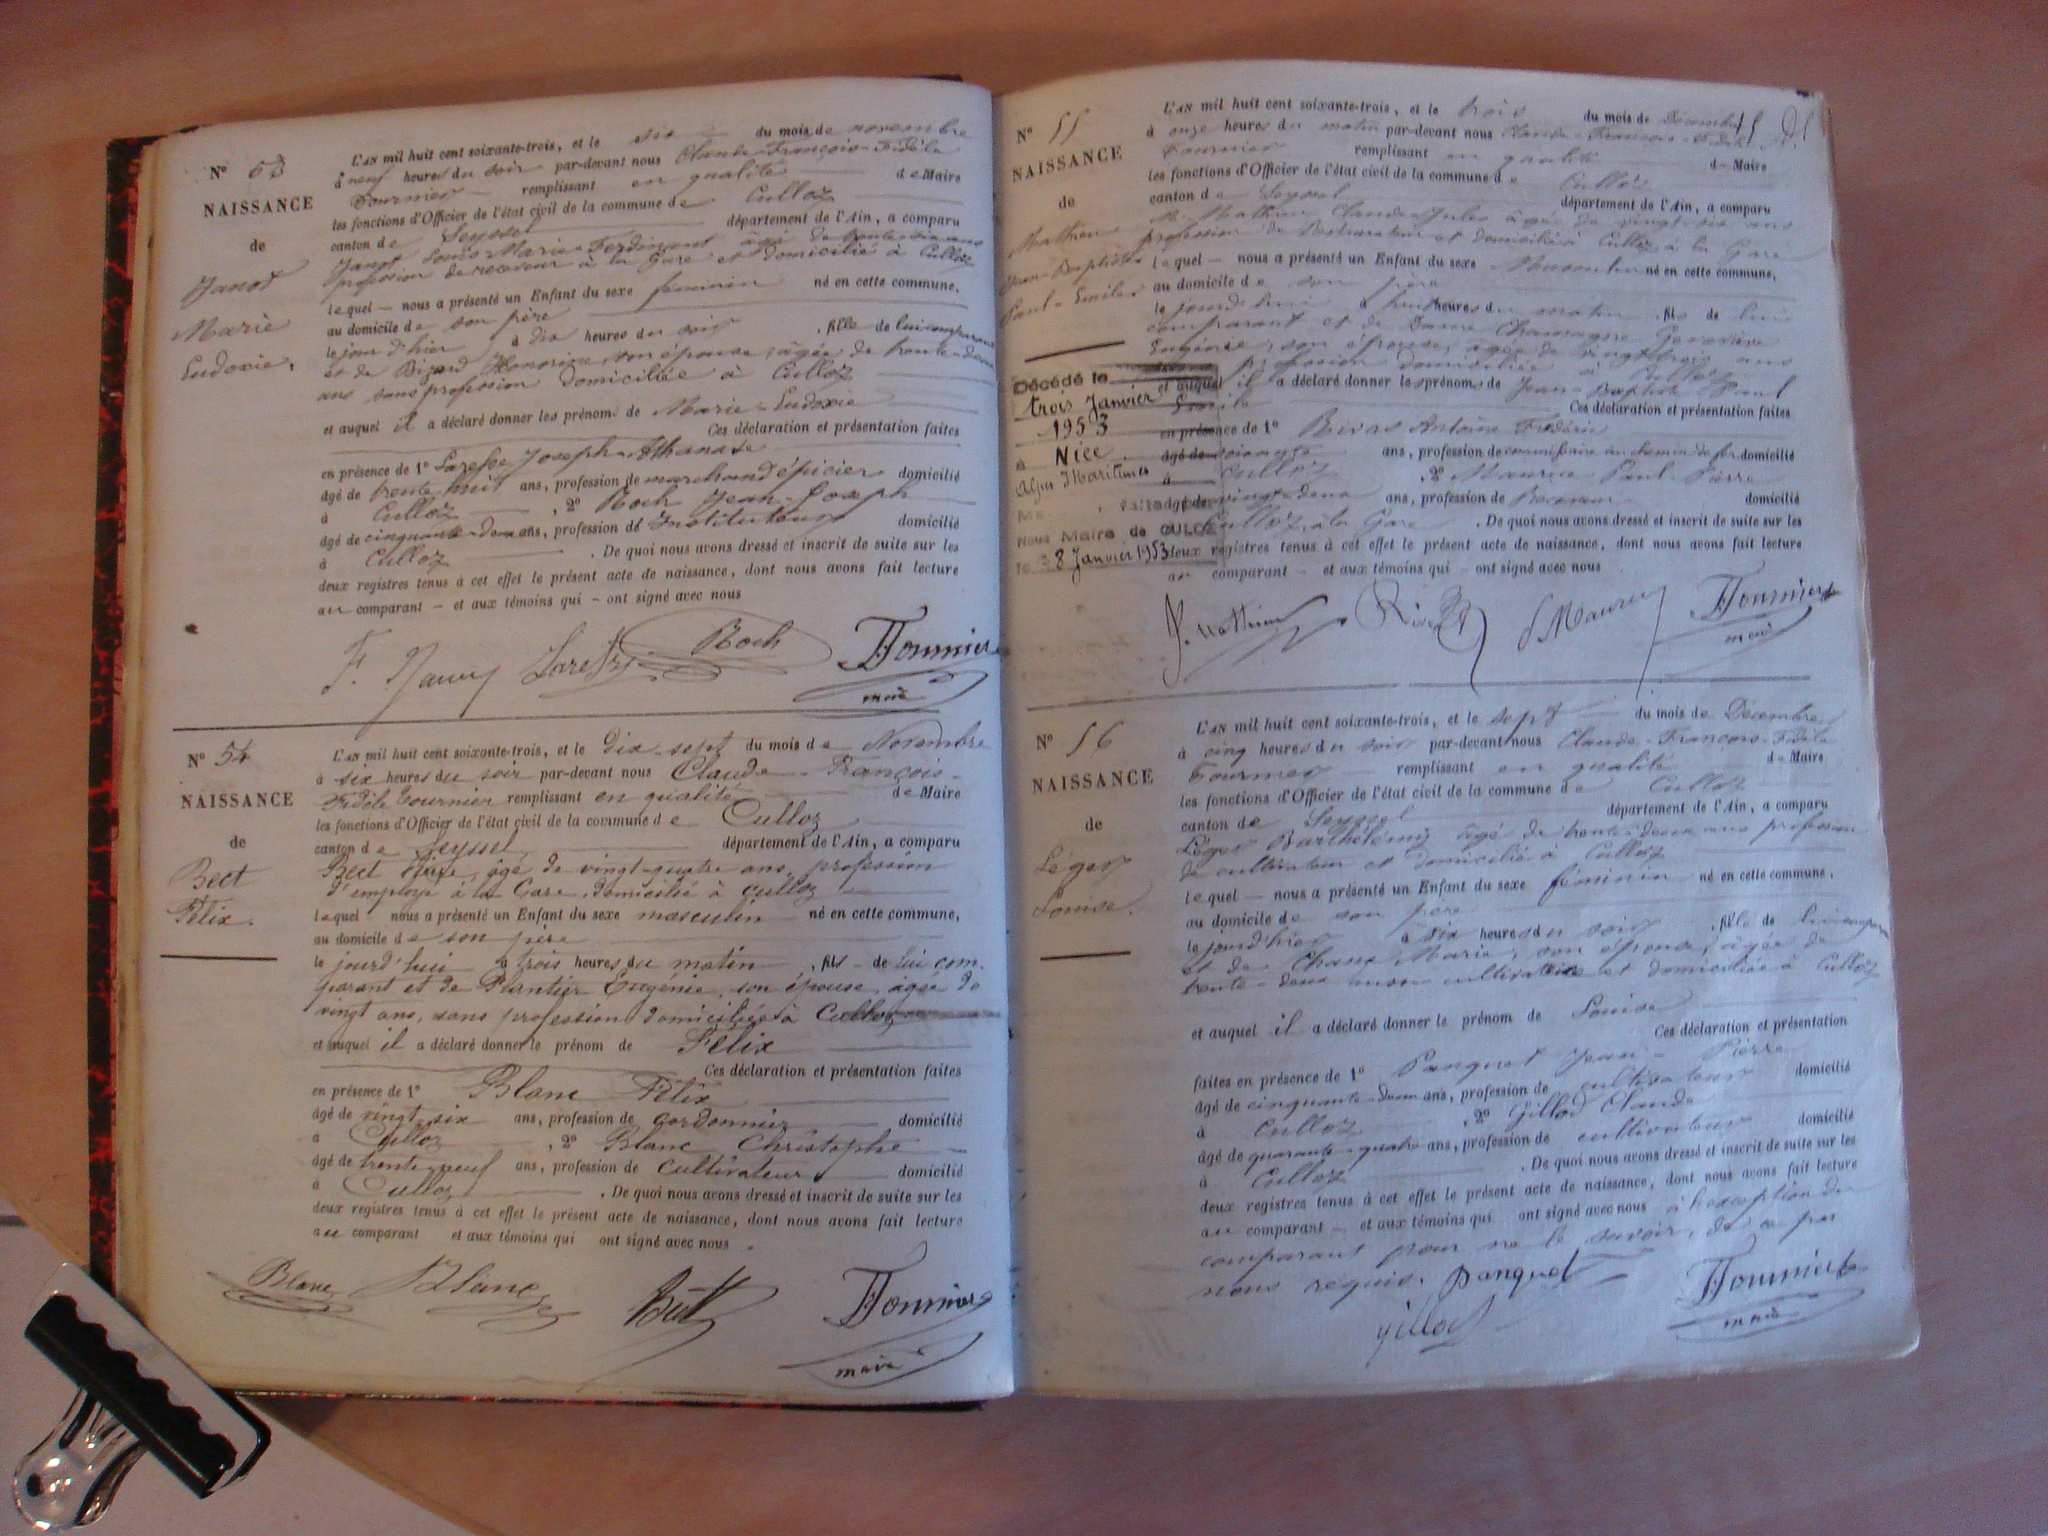 N° 53
NAISSANCE
de
Janot
Marie
Eudoxie.
L'AN mil huit cent soixante-trois, et le six du mois de novembre
à neuf heures du soir par-devant nous Claude-François-Fidèle
Tournier remplissant en qualité de Maire
les fonctions d'Officier de l'état civil de la commune de Culloz
canton de Seyssel département de l'Ain, a comparu
Janot Louis Marie Ferdinant âgé de trente-six ans
profession de receveur à la Gare et domicilié à Culloz
lequel nous a présenté un Enfant du sexe féminin né en cette commune,
au domicile de son père
le jour d'hier à dix heures du soir, fille de lui comparant
et de Bizard Honorine son épouse, âgée de trente-deux
ans sans profession domiciliée à Culloz
et auquel il a déclaré donner les prénoms de Marie-Eudoxie
Ces déclaration et présentation faites
en présence de 1° Joseph Athanase
âgé de trente huit ans, profession de marchand épicier domicilié
à Culloz, 2° Roch Jean-Joseph
âgé de cinquante-deux ans, profession de Instituteur domicilié
à Culloz. De quoi nous avons dressé et inscrit de suite sur les
deux registres tenus à cet effet le présent acte de naissance, dont nous avons fait lecture
au comparant et aux témoins qui ont signé avec nous
Roch Tournier
maire
N° 54
NAISSANCE
de
Bect
Félix.
L'AN mil huit cent soixante-trois, et le dix-sept du mois de Novembre
à six heures du soir par-devant nous Claude-François-
Fidèle Tournier remplissant en qualité de Maire
les fonctions d'Officier de l'état civil de la commune de Culloz
canton de Seyssel département de l'Ain, a comparu
Bect âgé de vingt-quatre ans, profession
d'employé à la Gare, domicilié à Culloz
lequel nous a présenté un Enfant du sexe masculin né en cette commune,
au domicile de son père
le jourd'hui à trois heures du matin, fils de lui com-
parant et de Plantier Eugénie, son épouse, âgée de
vingt ans, sans profession, domiciliée à Culloz
et auquel il a déclaré donner le prénom de Félix
Ces déclaration et présentation faites
en présence de 1° Blanc Félix
âgé de vingt six ans, profession de cordonnier domicilié
à Culloz, 2° Blanc Christophe
âgé de trente neuf ans, profession de cultivateur domicilié
à Culloz. De quoi nous avons dressé et inscrit de suite sur les
deux registres tenus à cet effet le présent acte de naissance, dont nous avons fait lecture
au comparant et aux témoins qui ont signé avec nous.
Blanc Blanc Bect Tournier
maire
N° 55
NAISSANCE
de
Mathieu
Jean-Baptiste
Paul-Emile
Décédé le
trois Janvier
1953
à Nice
Alpes Maritimes
Nous Maire de CULOZ
le 8 Janvier 1953
L'AN mil huit cent soixante-trois, et le trois du mois de Décembre
à onze heures du matin par-devant nous Claude-François-Fidèle
Tournier remplissant en qualité de Maire
les fonctions d'Officier de l'état civil de la commune de Culloz
canton de Seyssel département de l'Ain, a comparu
M. Mathieu Claude-Jules âgé de vingt-six ans
profession de Restaurateur et domicilié à Culloz à la Gare
lequel nous a présenté un Enfant du sexe Masculin né en cette commune,
au domicile de son père
le jourd'hui à heures du matin, fils de lui
comparant et de Dame Geneviève
Eugénie, son épouse, âgée de vingt-trois ans
profession domiciliée à Culloz
et auquel il a déclaré donner les prénoms de Jean-Baptiste Paul
Emile Ces déclaration et présentation faites
en présence de 1° Rivas Antoine Frédéric
âgé de ans, profession de au chemin de fer domicilié
à Culloz, 2° Maurice Paul-Pierre
âgé de vingt-deux ans, profession de Receveur domicilié
à Culloz, à la Gare. De quoi nous avons dressé et inscrit de suite sur les
deux registres tenus à cet effet le présent acte de naissance, dont nous avons fait lecture
au comparant et aux témoins qui ont signé avec nous
J. Mathieu Tournier
maire
N° 56
NAISSANCE
de
Léger
Louise.
L'AN mil huit cent soixante-trois, et le sept du mois de Décembre
à cinq heures du soir par-devant nous Claude-François-Fidèle
Tournier remplissant en qualité de Maire
les fonctions d'Officier de l'état civil de la commune de Culloz
canton de Seyssel département de l'Ain, a comparu
Léger Barthélemy âgé de trente-deux ans profession
de cultivateur et domicilié à Culloz
lequel nous a présenté un Enfant du sexe féminin né en cette commune,
au domicile de son père
le jourd'hier à six heures du soir, fille de lui comparant
et de Chane Marie, son épouse, âgée de
trente-deux ans cultivatrice et domiciliée à Culloz
et auquel il a déclaré donner le prénom de Louise
Ces déclaration et présentation
faites en présence de 1° Panquet Jean-Pierre
âgé de cinquante-deux ans, profession de cultivateur domicilié
à Culloz, 2° Gillod Claude
âgé de quarante-quatre ans, profession de cultivateur domicilié
à Culloz. De quoi nous avons dressé et inscrit de suite sur les
deux registres tenus à cet effet le présent acte de naissance, dont nous avons fait lecture
au comparant et aux témoins qui ont signé avec nous à l'exception du
comparant pour ne le savoir, de ce par
nous requis. Panquet Tournier
Gillod maire